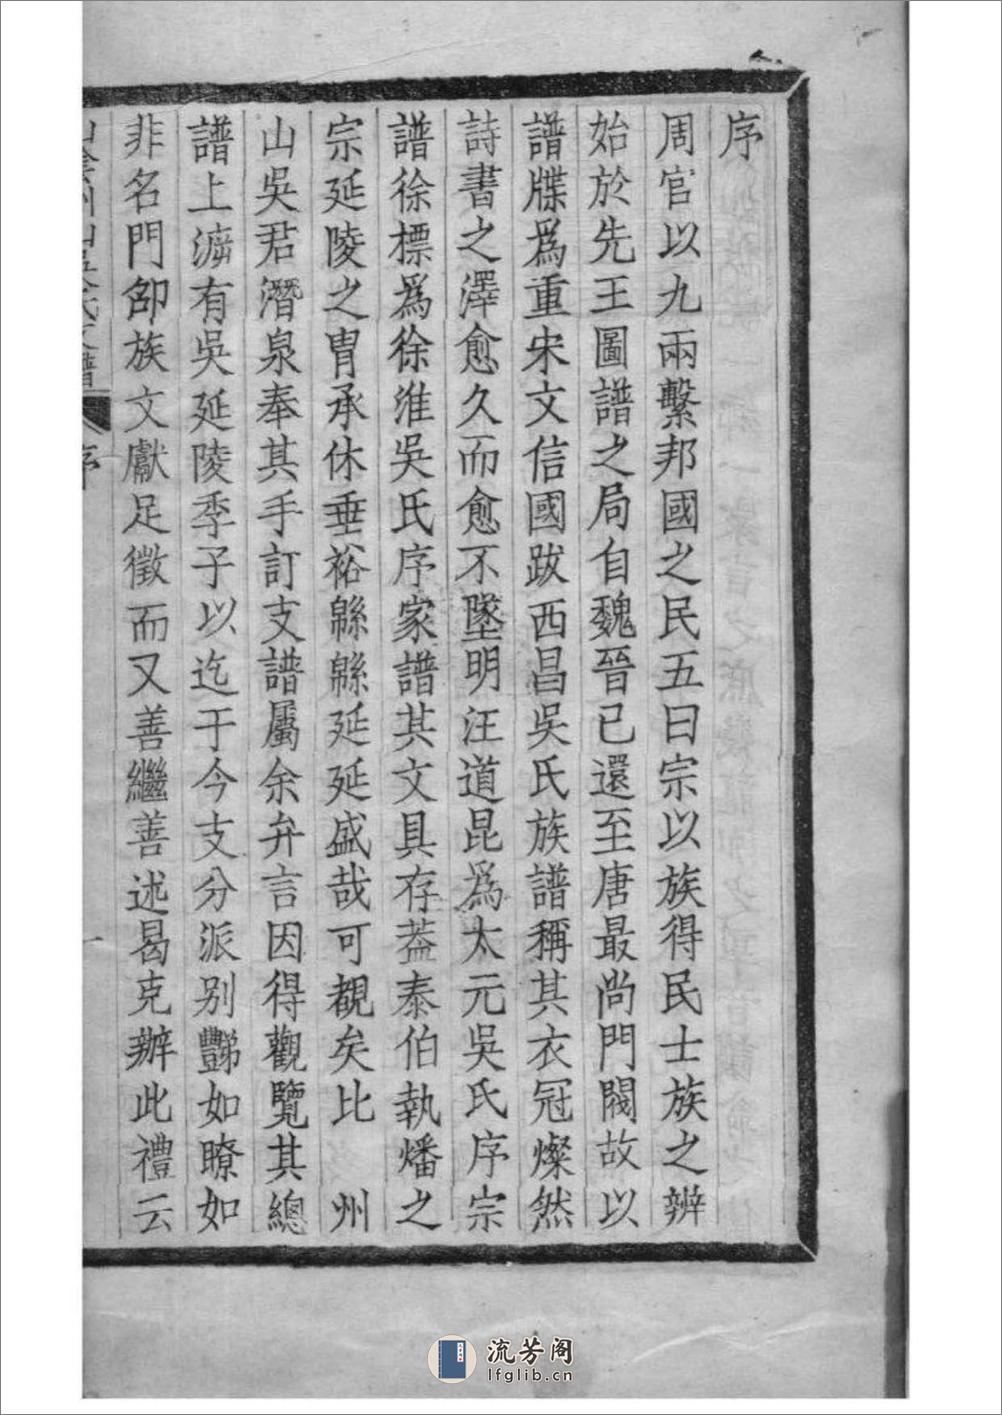 序
周官以九兩繫邦國之民五曰宗以族得民士族之辨
始於先王圖譜之局自魏晉已還至唐最尚門閥故以
譜牒爲重宋文信國跋西昌吳氏族譜稱其衣冠燦然
詩書之澤愈久而愈不墜明汪道昆爲太元吳氏序宗
譜徐標爲徐淮吳氏序家譜其文具存蓋泰伯執燔之
宗延陵之胄承休垂裕緜緜延延盛哉可覩矣比 州
山吳君潛泉奉其手訂支譜屬余弁言因得觀覽其總
譜上泝有吳延陵季子以迄于今支分派别豑如瞭如
非名門卲族文獻足徵而又善繼善述曷克辦此禮云
山陰州山吳氏支譜 序 一
流芳阁
lfglib.cn